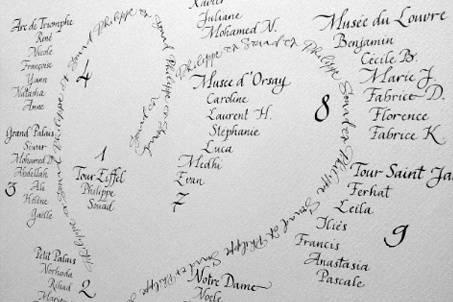 Arc de Triomphe
René
Nicole
Françoise
Yann
Natasha
Anne
4
Grand Palais
Mohamed D.
Abdellah
Ali
Hélène
Gaëlle
3
1
Tour Eiffel
Philippe
Souad
Petit Palais
Norhoda
Rihad
2
Xavier
Juliane
Mohamed N.
Musee d'Orsay
Caroline
Laurent H.
Stephanie
Luca
Medhi
Evan
7
Notre Dame
Musée du Louvre
Benjamin
Cécile B.
Marie J.
Fabrice D.
Florence
Fabrice K
8
Tour Saint Ja
Ferhat
Leila
Iliés
Francis
Anastasia
Pascale
9
Souad et Philippe et Souad Philippe et Souad
Philippe et Souad et Philippe Souad et Philippe Souad et Philippe Souad et Philippe